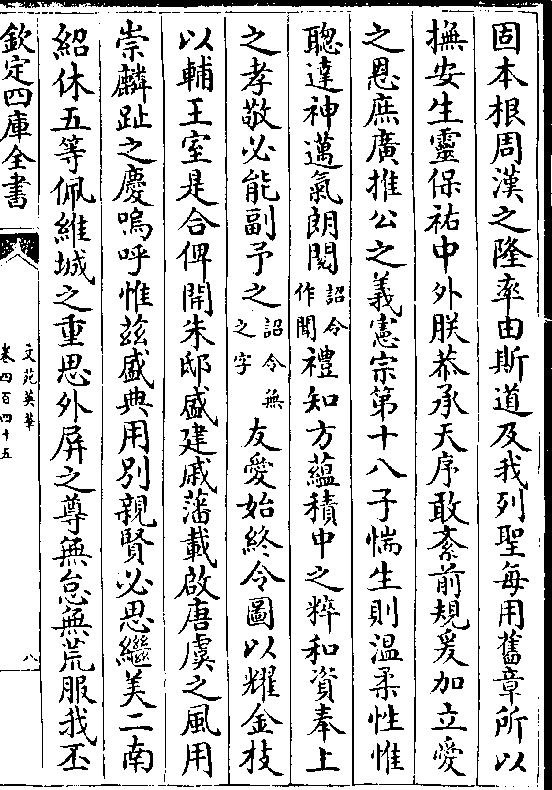 固本根周漢之隆率由斯道及我列聖每用舊章所以
撫安生靈保祐中外朕恭承天序敢紊前規爰加立愛
之恩庶廣推公之義憲宗第十八子惴生則溫柔性惟
聰達神邁氣朗閱詔令作聞禮知方蘊積中之粹和資奉上
之孝敬必能副予之詔令無之字友愛始終令圖以耀金枝
以輔王室是合俾開朱邸盛建戚藩載啟唐虞之風用
崇麟趾之慶嗚呼惟兹盛典用別親賢必思繼美二南
紹休五等佩維城之重思外屏之尊無怠無荒服我丕
欽定四庫全書
文苑英華
卷四百四十五
八